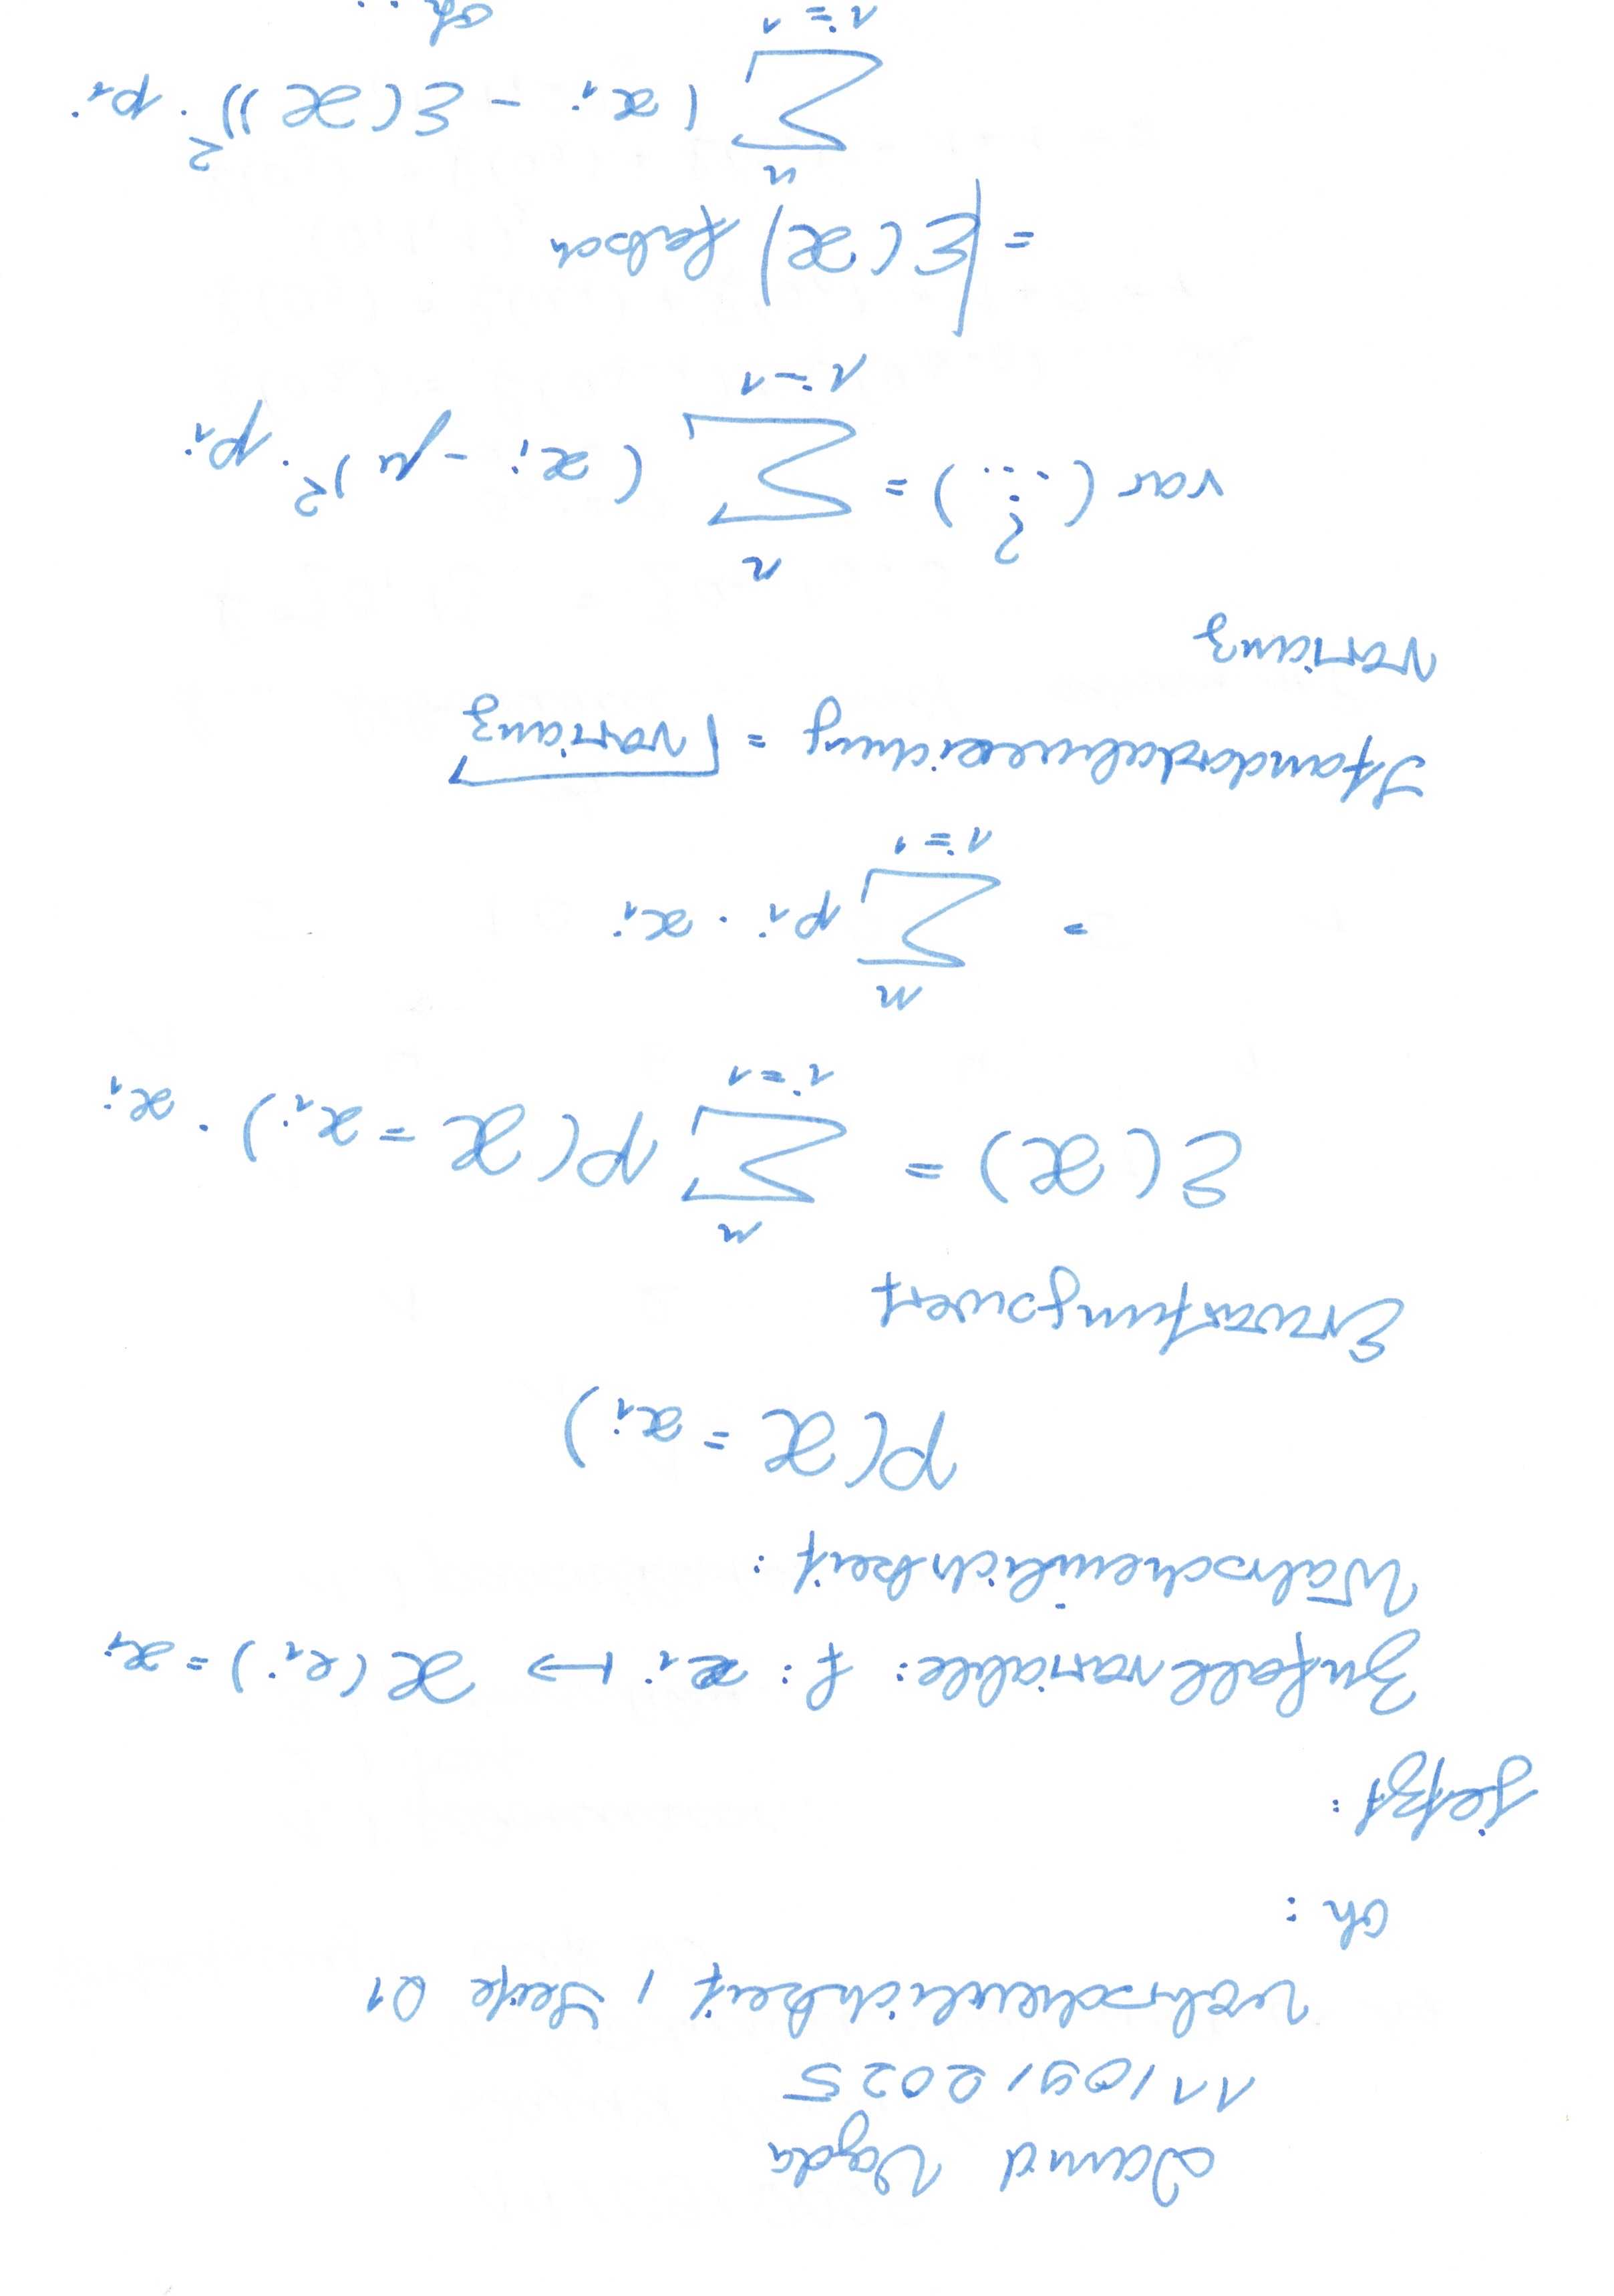 David Vajda
11,09,2025
Wahrscheinlichkeit, Seite 01
Oh :
jetzt :
Zufallsvariable: f : e_i ↦ X(e_i) = x_i
Wahrscheinlichkeit :
P(X = x_i)
Erwartungswert
E(X) = ∑_{i=1}^{n} P(X = x_i) · x_i
= ∑_{i=1}^{n} p_i · x_i
Standardabweichung = √Varianz
Varianz
var(...) = ∑_{i=1}^{n} (x_i - μ)² · p_i
= |E(X)| falsch
∑_{i=1}^{n} (x_i - E(X))² · p_i